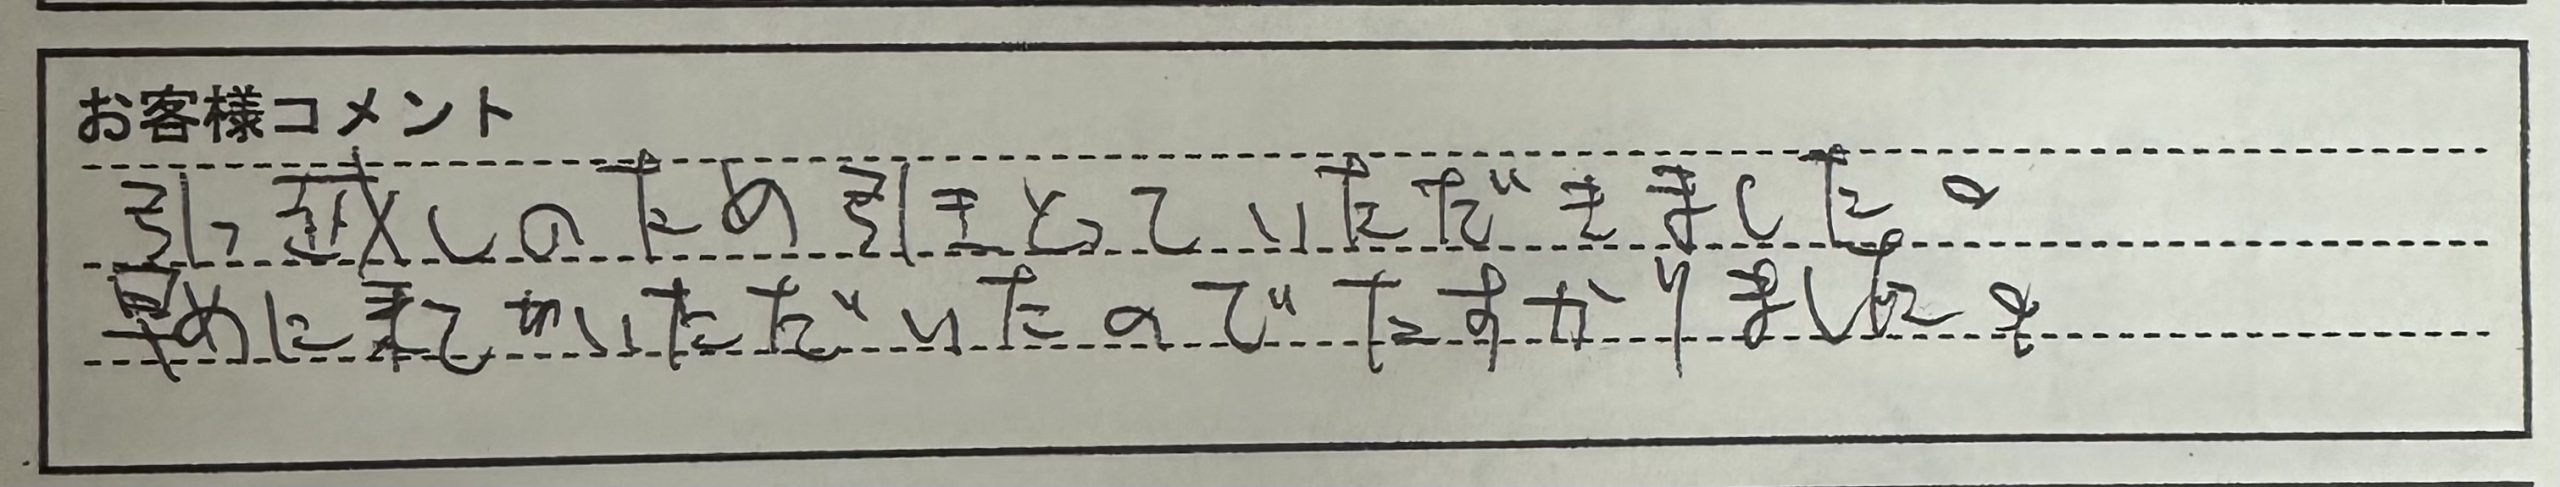 お客様コメント
引っ越しのため引きとっていただきました。
早めに来ていただいたのでたすかりました。